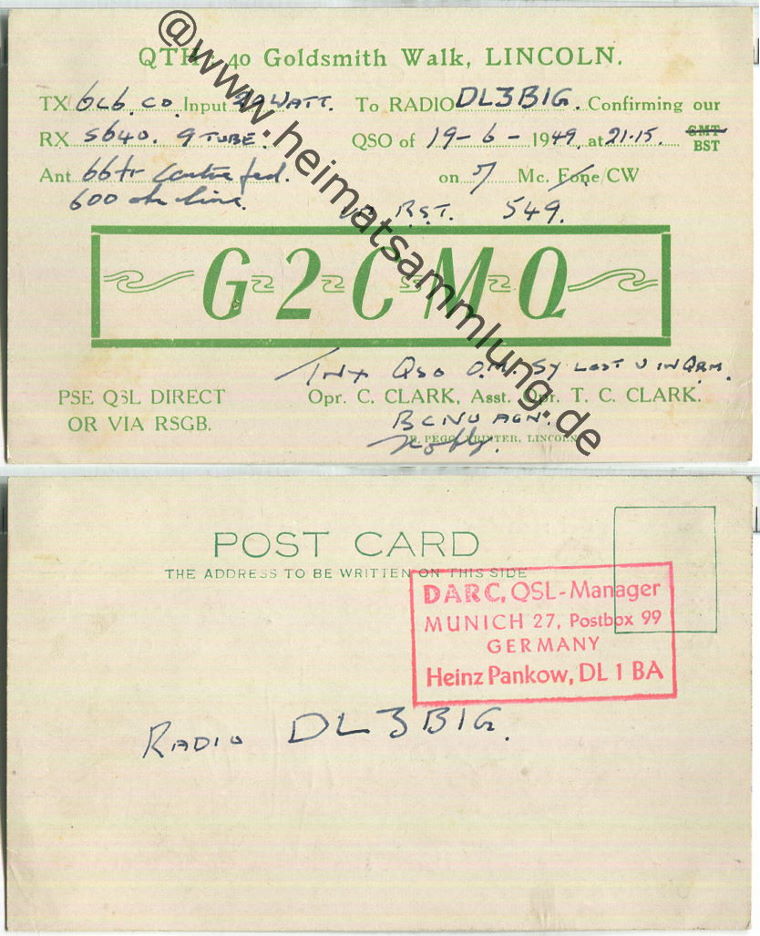 QTH 40 Goldsmith Walk, LINCOLN.
TX 6L6. CO. Input WATT. To RADIO DL3BIG. Confirming our
RX S640. 9 TUBE. QSO of 19-6-1949. at 21.15. GMT
BST
Ant 66 ft centre fed. on 7 Mc. Fone/CW
600 ohm line. UR RST. 549.
G2CMQ
TNX QSO O.M. SY LOST U IN QRM.
PSE QSL DIRECT
OR VIA RSGB.
Opr. C. CLARK, Asst. Opr. T. C. CLARK.
BCNU AGN.
PRINTER, LINCOLN
@www.heimatsammlung.de
POST CARD
THE ADDRESS TO BE WRITTEN ON THIS SIDE
DARC, QSL-Manager
MUNICH 27, Postbox 99
GERMANY
Heinz Pankow, DL 1 BA
RADIO DL3BIG.